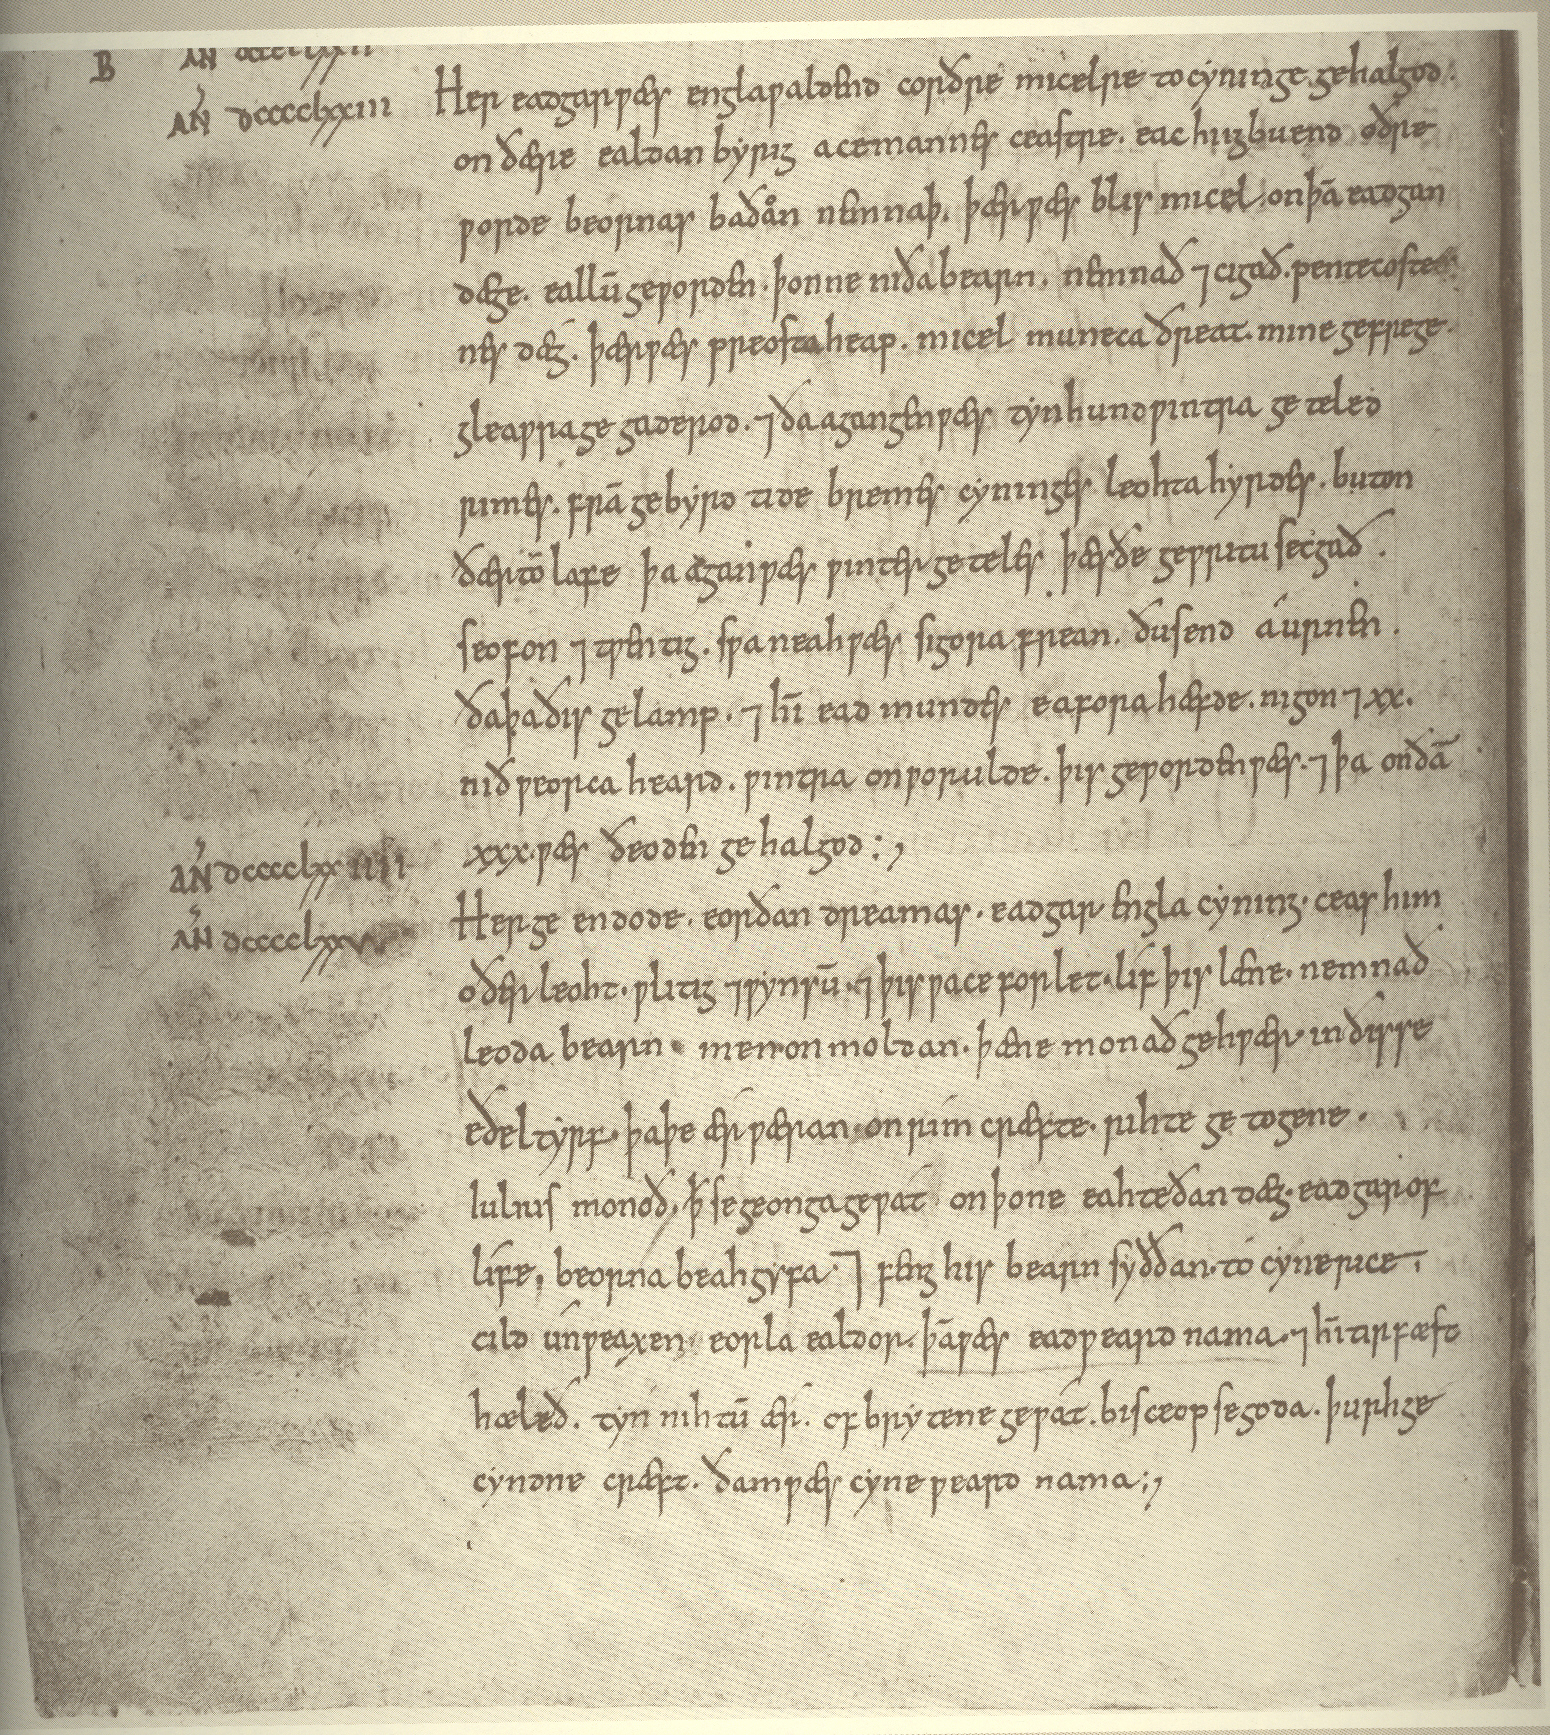 B AN̄ dcccclxxii
AN̄ dcccclxxiii Her eadgar ƿæs engla ƿaldend corðre micelre to cyninge gehalgod.
on ðære ealdan byrig acemannes ceastre. eac hi igbuend oðre
ƿorde beornas baðan nemnaþ. þær ƿæs blis micel. on þā eadgan
dæge. eallū geƿorden. þonne niða bearn. nemnað ⁊ cigað. pentecostes
nes dæg. þær ƿæs preosta heap. micel muneca ðreat. mine gefrege.
gleaƿra gegaderod. ⁊ ða agangen ƿæs tyn hund ƿintra geteled
rimes. frā gebyrd tide bremes cyninges leohta hyrdes. buton
ðær tō lafe þa agan ƿæs ƿinter geteles þæs ðe geƿritu secgað.
seofon ⁊ tƿentig. sƿa neah ƿæs sigora frean. ðusend aurnen.
ða þa ðis gelamp. ⁊ hī eadmundes eafora hæfde. nigon ⁊ xx.
nið ƿeorca heard. ƿintra on ƿorulde. þis geƿorden ƿæs. ⁊ þa on ðā
xxx. ƿæs ðeoden gehalgod :,
AN̄ dcccclxxiiii
AN̄ dcccclxxv Her geendode. eorðan dreamas. eadgar engla cyning. ceas him
oðer leoht. ƿlitig ⁊ ƿynsū. ⁊ þis ƿace forlet. lif þis læne. nemnað
leoda bearn. men on moldan. þæne monað gehƿær. in ðisse
eðeltyrf. þa þe ær ƿæran. on rim cræfte. rihte getogene.
Iulius monoð. ꝥ se geonga geƿat on þone eahteðan dæg. eadgar of
life. beorna beahgyfa. ⁊ feng his bearn syððan. to cynerice.
cild unƿeaxen. eorla ealdor. þā ƿæs eadƿeard nama. ⁊ hī tirfæst
hæleð. tyn nihtū ær. of brytene geƿat. bisceop se goda. þurh ge
cyndne cræft. ðam ƿæs cyneƿeard nama :,